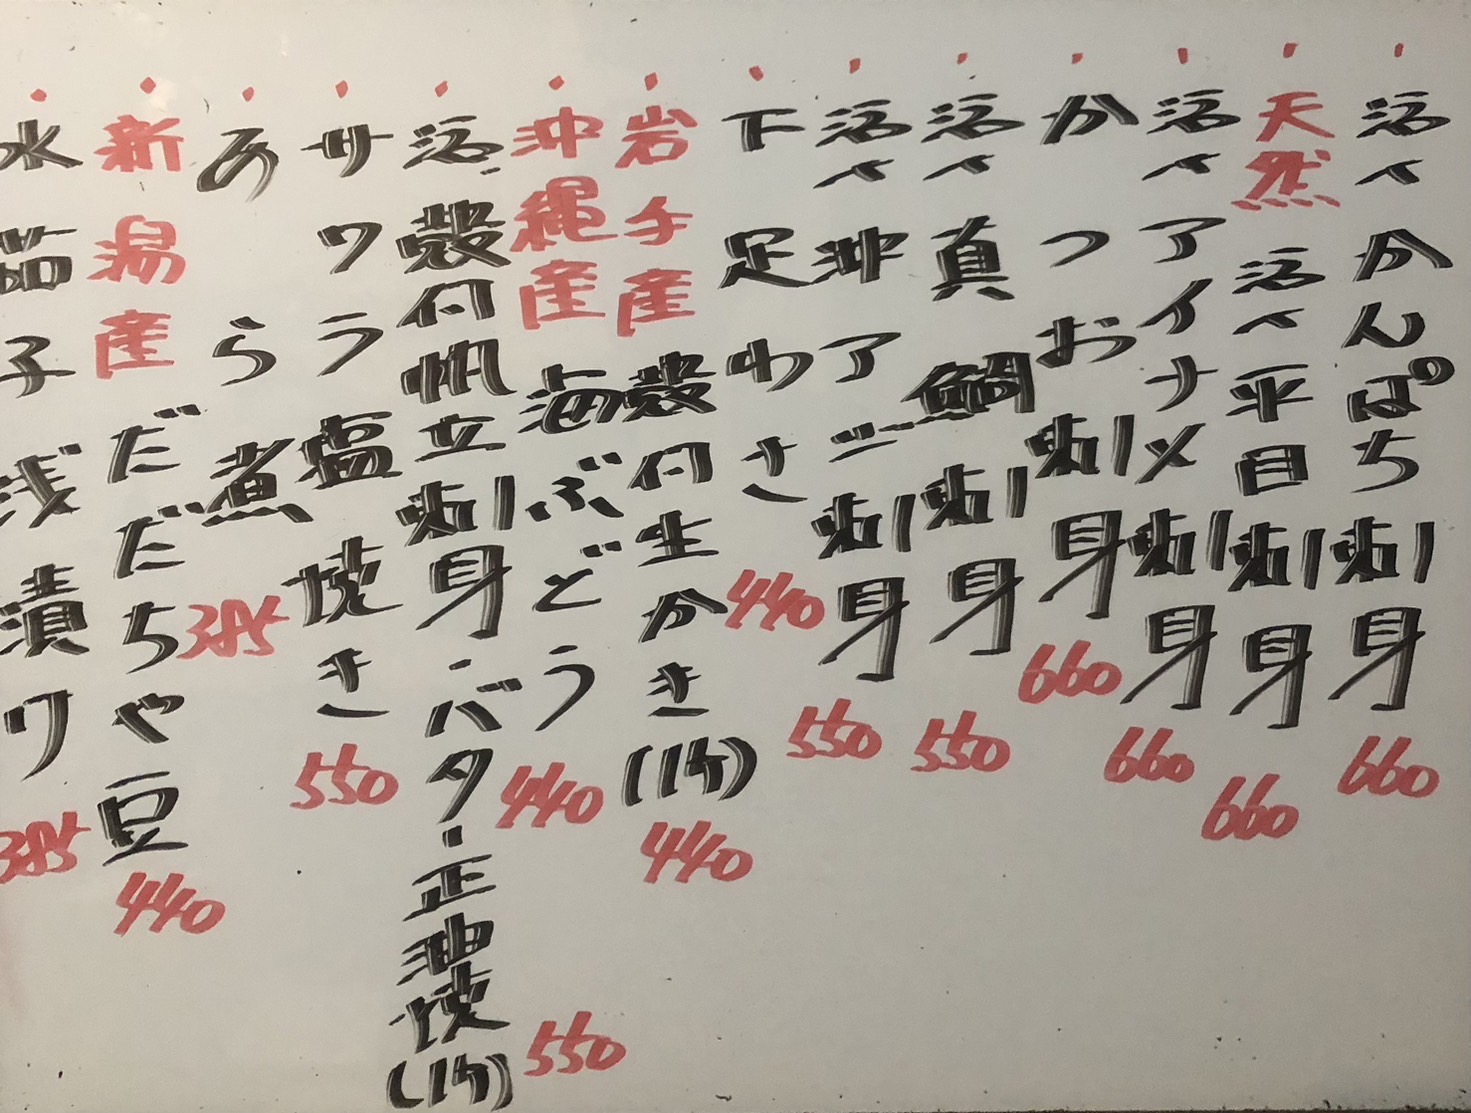 ・活〆かんぱち刺身 660
・天然 活〆平目刺身 660
・活〆アイナメ刺身 660
・かつお刺身 660
・活〆真鯛刺身 550
・活〆沖アジ刺身 550
・下足わさ 440
・岩手産 殻付生かき(1ケ) 440
・沖縄産 海ぶどう 440
・活殻付帆立刺身・バター正油焼(1ケ) 550
・サワラ塩焼き 550
・あら煮 385
・新潟産 だだちゃ豆 440
・水茄子浅漬け 385